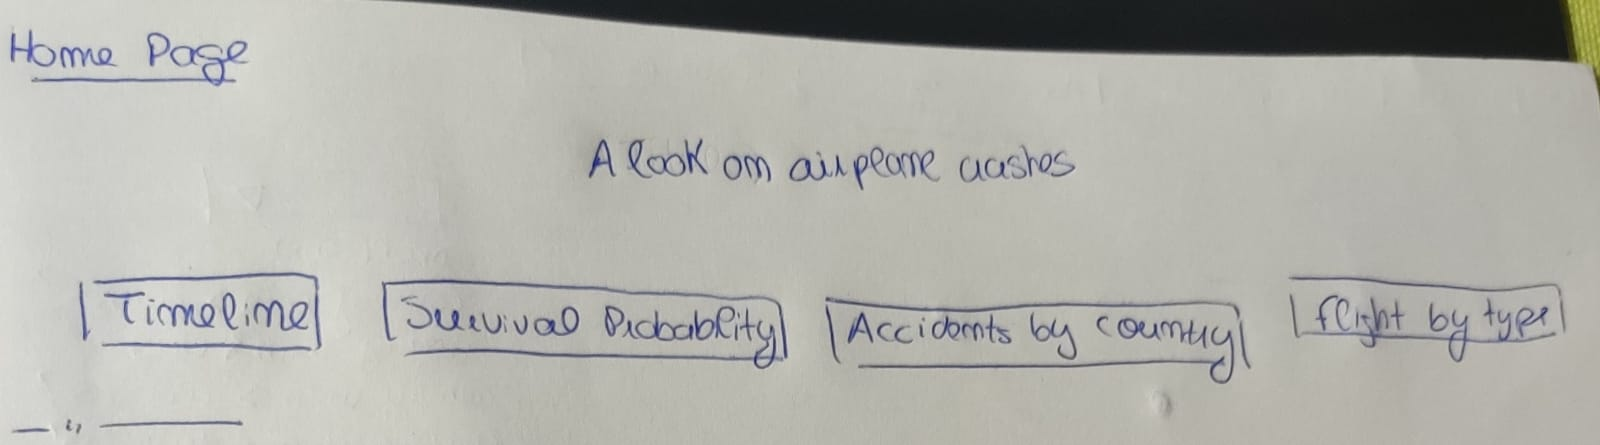 Home Page
A look on airplane crashes
Timeline Survival Probability Accidents by country flight by type
— " —